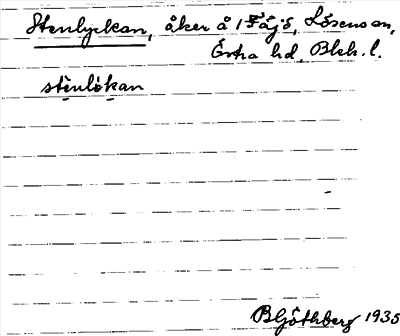 Stenlyckan, åker å 1 Fäjö, Lösens sn,
Östra hd, Blek. l.
stènlỏkan
B Göthberg 1935